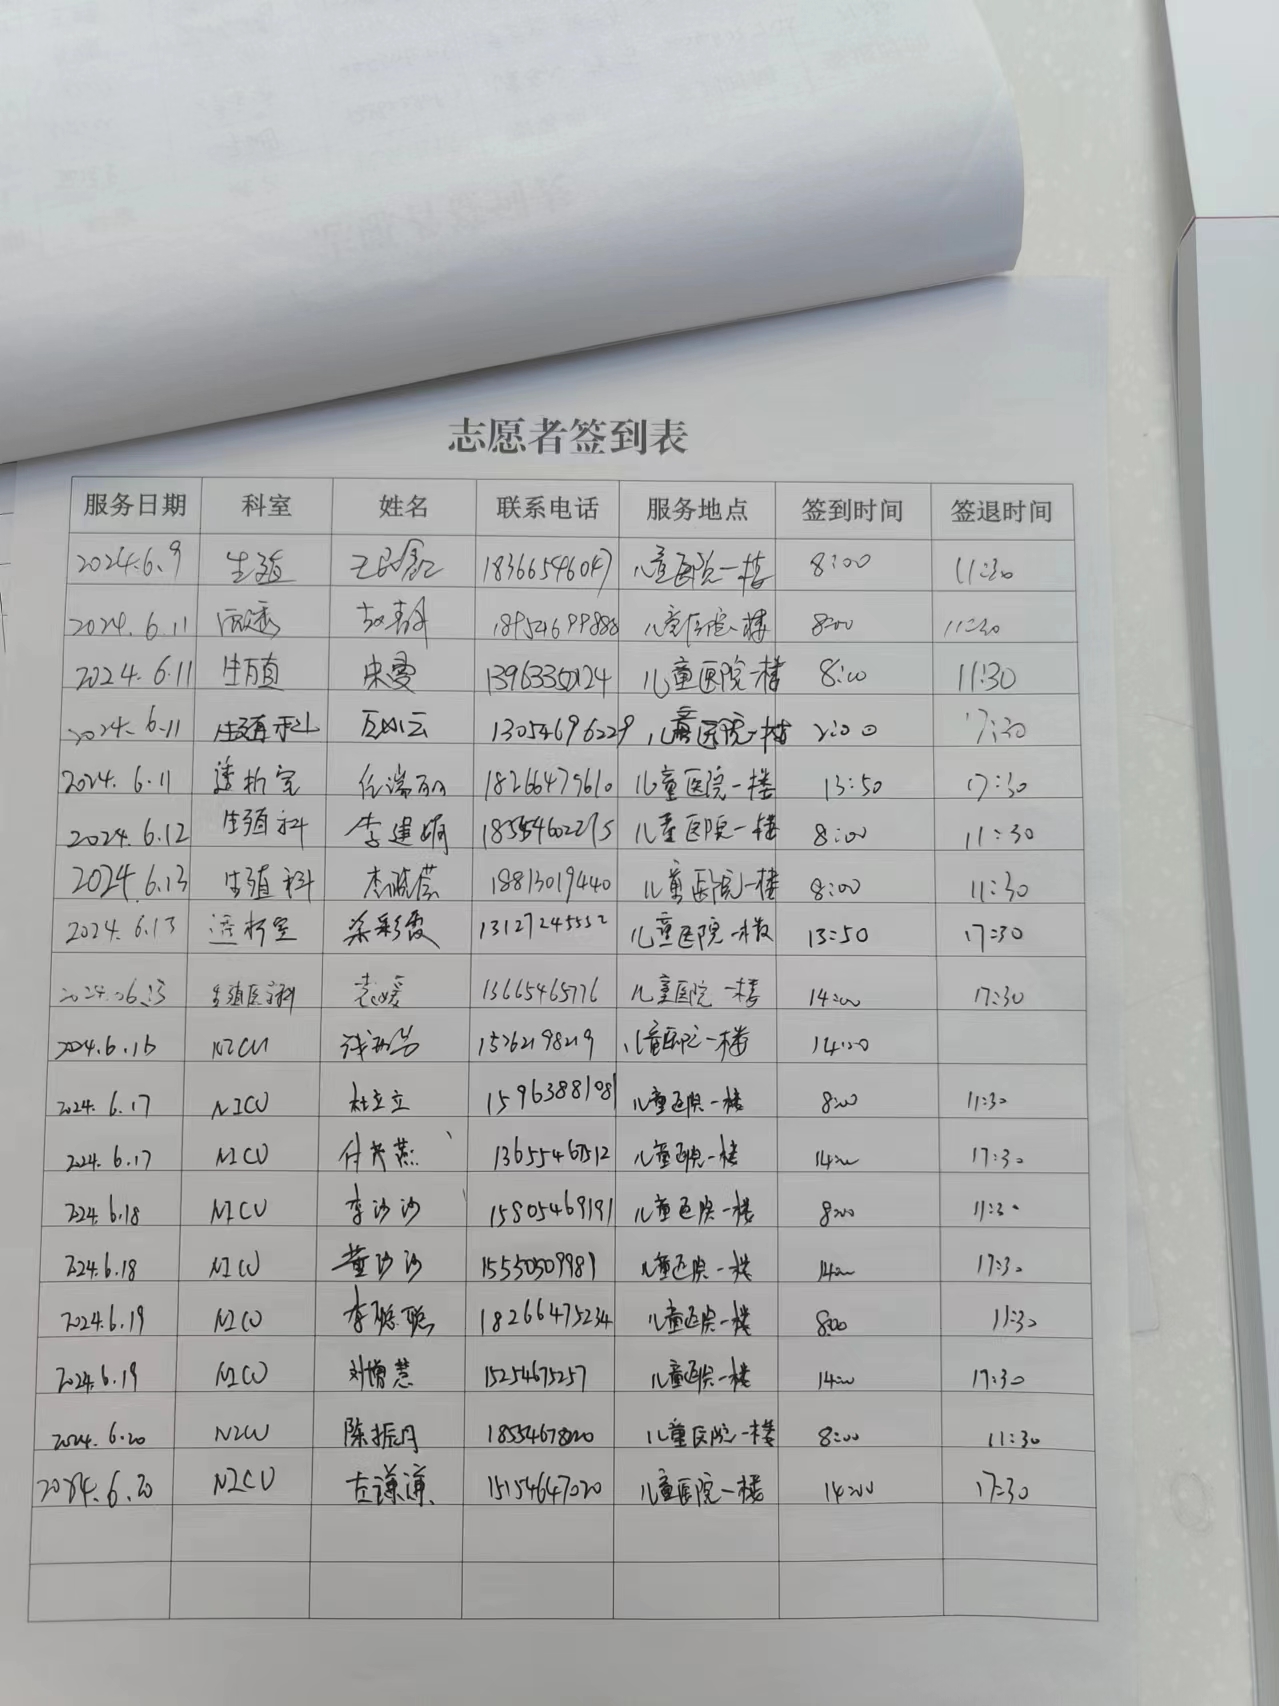 志愿者签到表
服务日期 科室 姓名 联系电话 服务地点 签到时间 签退时间
2024.6.9 生殖 18366546047 儿童医院一楼 8:00 11:30
2024.6.11 18954699888 儿童医院一楼 8:00 11:30
2024.6.11 生殖 宋雯 13963350124 儿童医院一楼 8:00 11:30
2024.6.11 生殖科 13054696229 儿童医院一楼 2:00 17:30
2024.6.11 透析室 任瑞丽 18266479610 儿童医院一楼 13:50 17:30
2024.6.12 生殖科 李建娟 18554602275 儿童医院一楼 8:00 11:30
2024.6.13 生殖科 18813019440 儿童医院一楼 8:00 11:30
2024.6.13 透析室 梁彩霞 13127245552 儿童医院一楼 13:50 17:30
2024.06.13 生殖医学科 袁媛 13665465776 儿童医院一楼 14:00 17:30
2024.6.16 NICU 15262198219 儿童医院一楼 14:00
2024.6.17 NICU 杜立立 15963881081 儿童医院一楼 8:00 11:30
2024.6.17 NICU 13655467512 儿童医院一楼 14:00 17:30
2024.6.18 NICU 李沙沙 15805469191 儿童医院一楼 8:00 11:30
2024.6.18 NICU 董沙沙 15550509989 儿童医院一楼 14:00 17:30
2024.6.19 NICU 李聪聪 18266475234 儿童医院一楼 8:00 11:30
2024.6.19 NICU 刘增慧 15254675257 儿童医院一楼 14:00 17:30
2024.6.20 NICU 陈振月 18554678020 儿童医院一楼 8:00 11:30
2024.6.20 NICU 左谦谦 15154647020 儿童医院一楼 14:00 17:30